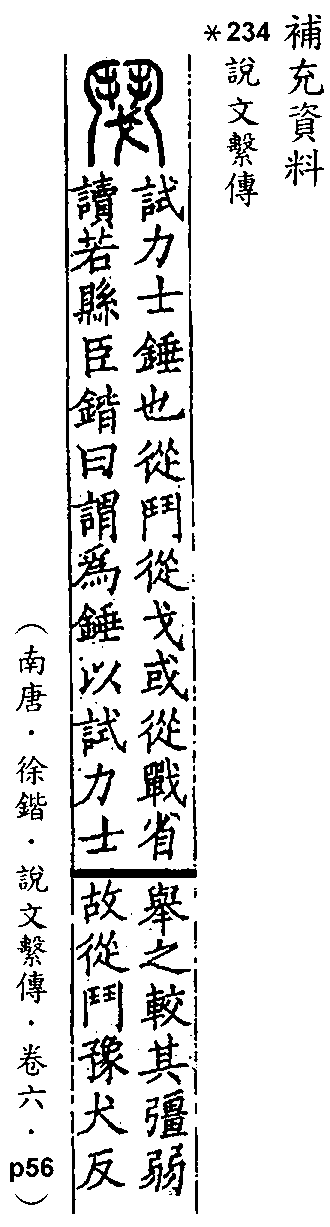 補充資料
*234
說文繫傳
試力士錘也從鬥從戈或從戰省
讀若縣臣鍇曰謂爲錘以試力士
舉之較其彊弱
故從鬥豫犬反
（南唐・徐鍇・說文繫傳・卷六・p56）